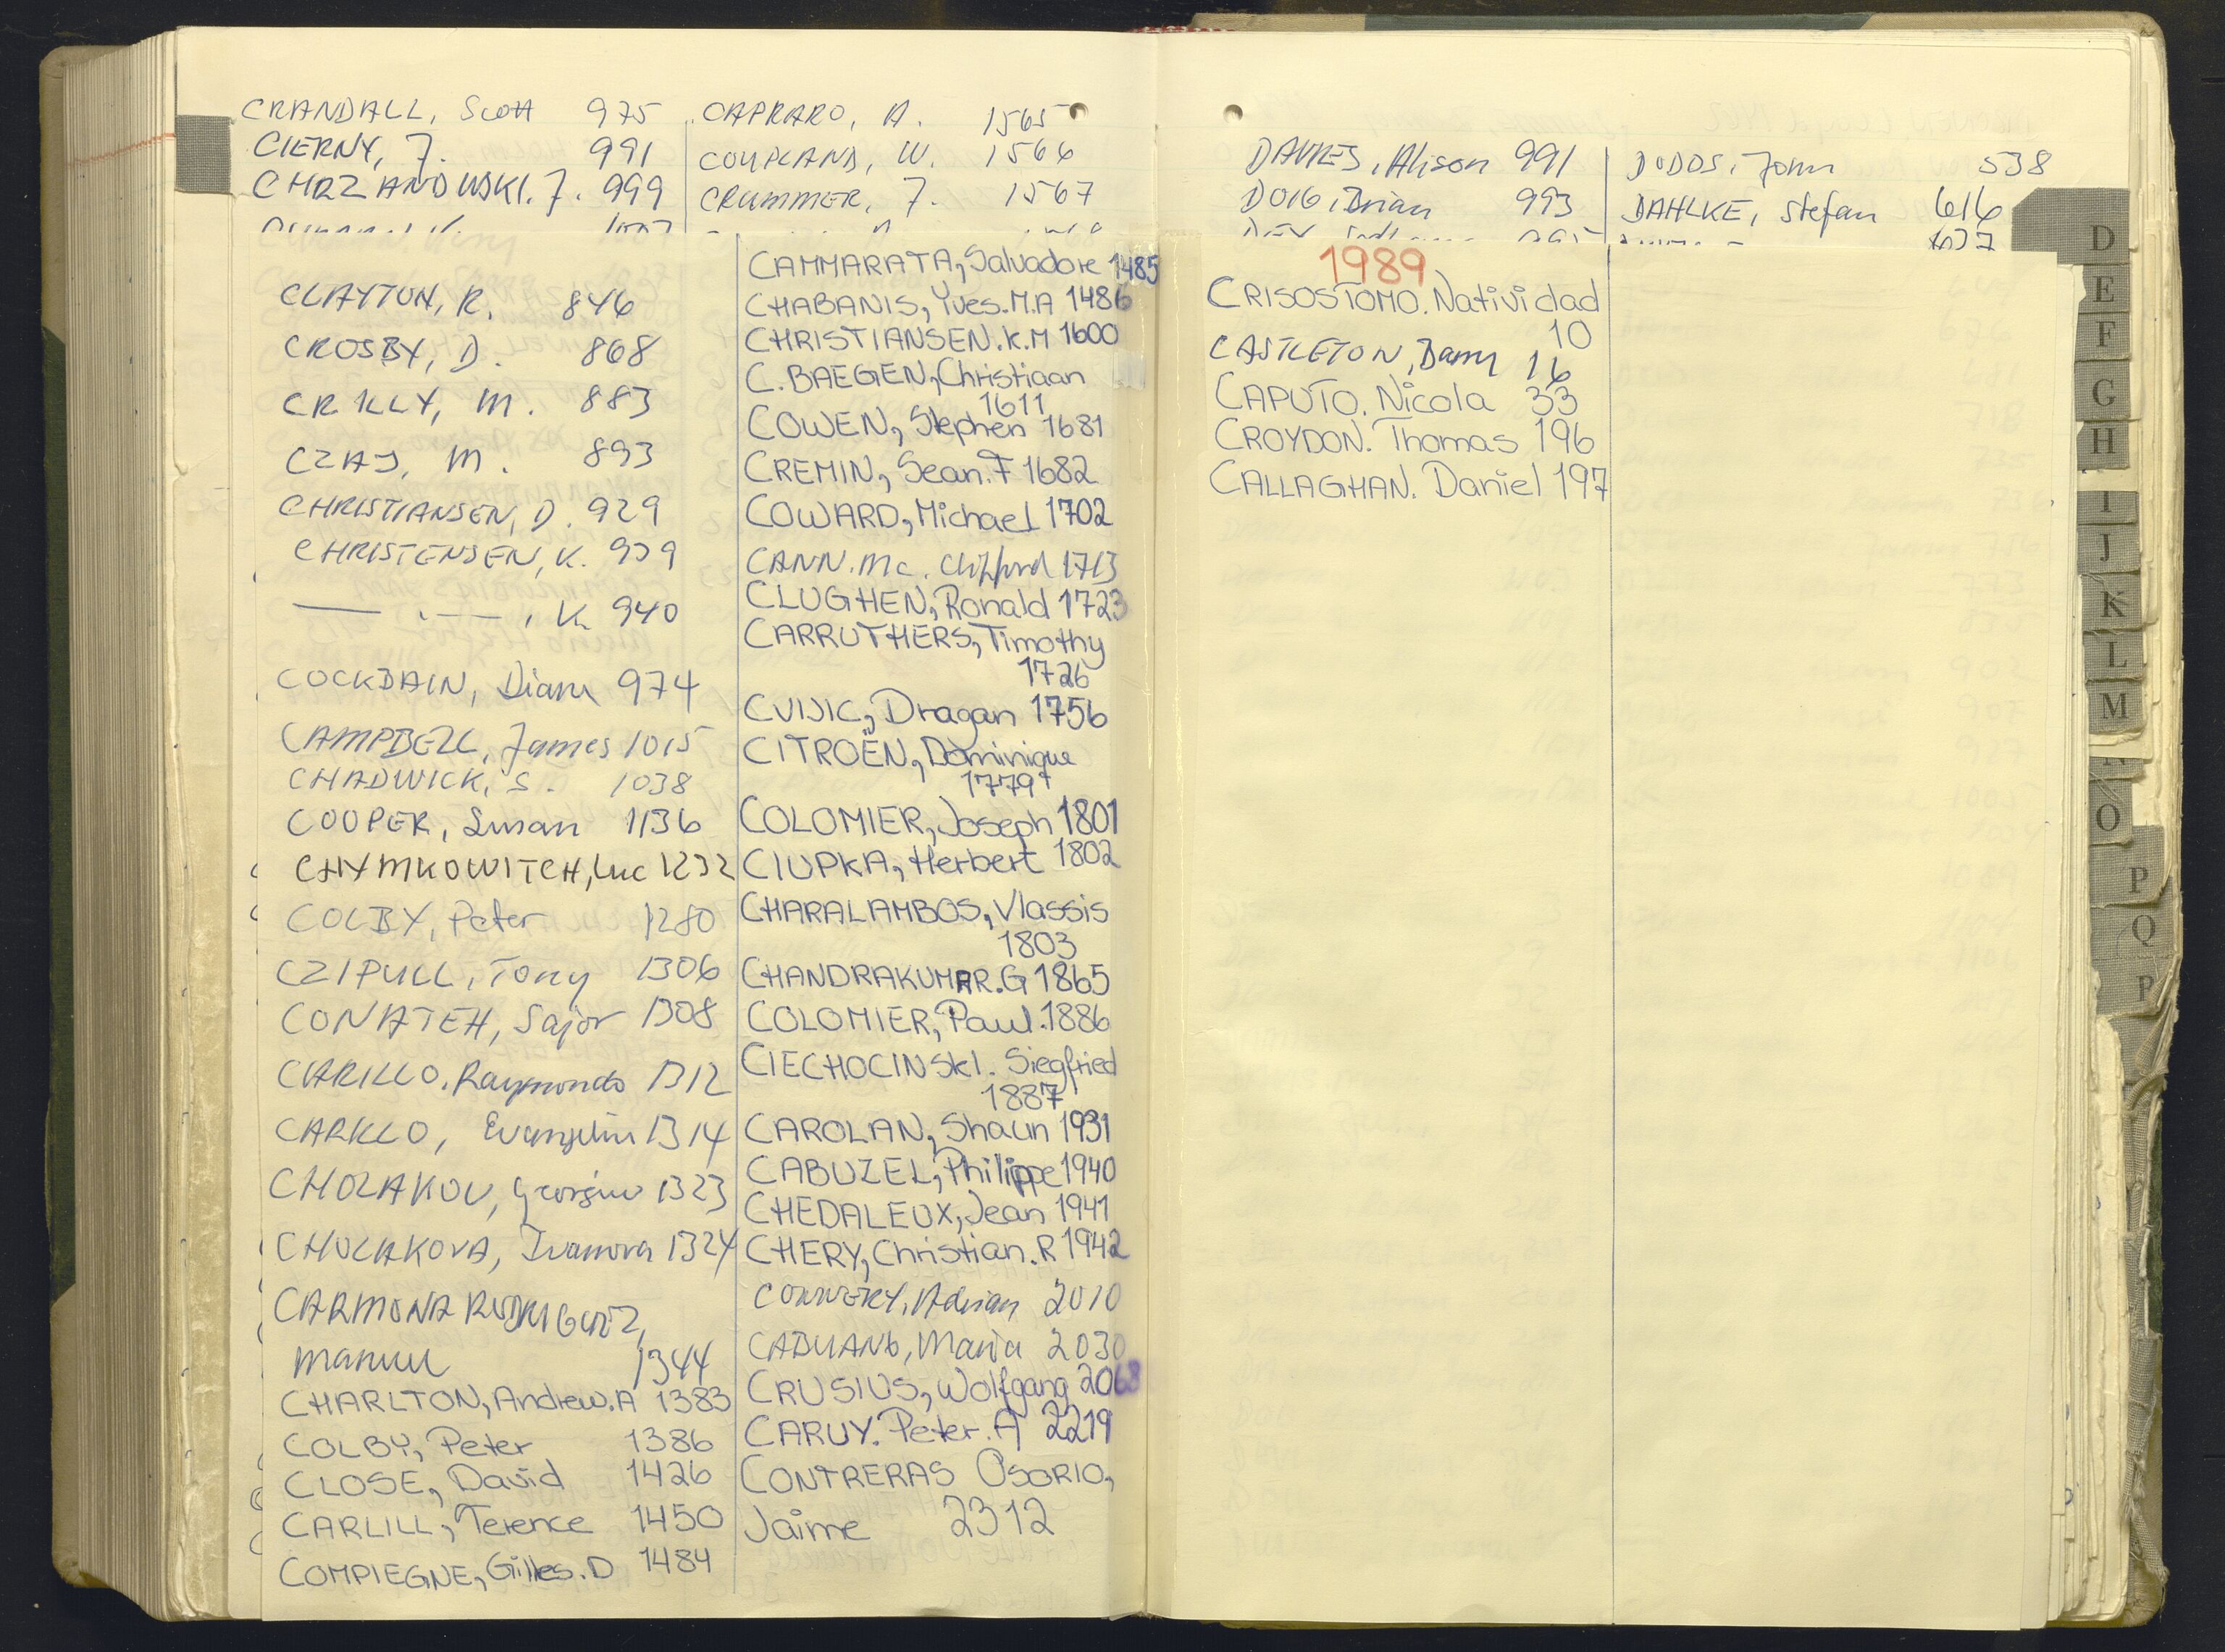 CRANDALL, Scott 975
CIERNY, J. 991
CHRZANOWSKI. J. 999
CAPRARO, A. 1565
COUPLAND, W. 1566
CRUMMER, J. 1567
CLAYTON, R. 846
CROSBY, D. 868
CRILLY, M. 883
CZAJ, M. 893
CHRISTIANSEN, D. 929
CHRISTENSEN, K. 939
— . — , K. 940
COCKBAIN, Diana 974
CAMPBELL, James 1015
CHADWICK, S. 1038
COOPER, Susan 1136
CHYMKOWITCH, Luc 1232
COLBY, Peter 1280
CZIPULL, Tony 1306
CONATEH, Sajor 1308
CARILLO, Raymondo 1312
CARILLO, 1314
CHOLAKOV, 1323
CHOLAKOVA, Ivanova 1324
CARMONA RODRIGUEZ,
Manuel 1344
CHARLTON, Andrew. A 1383
COLBY, Peter 1386
CLOSE, David 1426
CARLILL, Terence 1450
COMPIEGNE, Gilles. D 1484
CAMMARATA, Salvadore 1485
CHABANIS, Yves. M.A 1486
CHRISTIANSEN. K.M 1600
C. BAEGEN, Christiaan
1611
COWEN, Stephen 1681
CREMIN, Sean. F 1682
COWARD, Michael 1702
CANN. Mc. Clifford 1713
CLUGHEN, Ronald 1723
CARRUTHERS, Timothy
1726
CVIJIC, Dragan 1756
CITROËN, Dominique
1779
COLOMIER, Joseph 1801
CIUPKA, Herbert 1802
CHARALAMBOS, Vlassis
1803
CHANDRAKUMAR. G 1865
COLOMIER, Paul. 1886
CIECHOCINSKI. Siegfried
1887
CAROLAN, Shaun 1931
CABUZEL, Philippe 1940
CHEDALEUX, Jean 1941
CHERY, Christian. R 1942
CONNERY, Adrian 2010
CABUANO, Maria 2030
CRUSIUS, Wolfgang 2068
CARUY. Peter. A 2219
CONTRERAS OSORIO,
Jaime 2312
DAVIES, Alison 991
DOIG, Brian 993
DODDS, John 538
DAHLKE, Stefan 616
637
1989
CRISOSTOMO. Natividad
10
CASTLETON, Barry 16
CAPUTO. Nicola 33
CROYDON. Thomas 196
CALLAGHAN. Daniel 197
D
E
F
G
H
I
J
K
L
M
O
P
Q